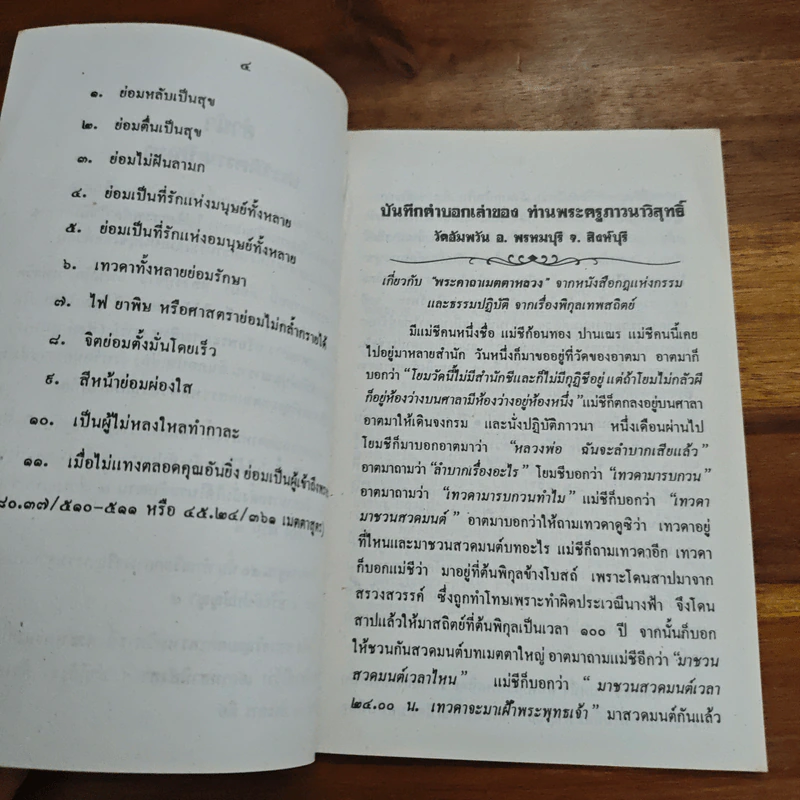 ๔
๑. ย่อมหลับเป็นสุข
๒. ย่อมตื่นเป็นสุข
๓. ย่อมไม่ฝันลามก
๔. ย่อมเป็นที่รักแห่งมนุษย์ทั้งหลาย
๕. ย่อมเป็นที่รักแห่งอมนุษย์ทั้งหลาย
๖. เทวดาทั้งหลายย่อมรักษา
๗. ไฟ ยาพิษ หรือศาสตราย่อมไม่กล้ำกรายได้
๘. จิตย่อมตั้งมั่นโดยเร็ว
๙. สีหน้าย่อมผ่องใส
๑๐. เป็นผู้ไม่หลงใหลทำกาละ
๑๑. เมื่อไม่แทงตลอดคุณอันยิ่ง ย่อมเป็นผู้เข้าถึง
๘๐.๓๗/๕๑๐-๕๑๑ หรือ ๔๕.๒๔/๓๖๑ เมตตาสูตร)
บันทึกคำบอกเล่าของ ท่านพระครูภาวนาวิสุทธิ์
วัดอัมพวัน อ. พรหมบุรี จ. สิงห์บุรี
เกี่ยวกับ "พระคาถาเมตตาหลวง" จากหนังสือกฎแห่งกรรม
และธรรมปฏิบัติ จากเรื่องพิกุลเทพสถิตย์
มีแม่ชีคนหนึ่งชื่อ แม่ชีก้อนทอง ปานเณร แม่ชีคนนี้เคย
ไปอยู่มาหลายสำนัก วันหนึ่งก็มาขออยู่ที่วัดของอาตมา อาตมาก็
บอกว่า "โยมวัดนี้ไม่มีสำนักชีและก็ไม่มีกุฏิชีอยู่ แต่ถ้าโยมไม่กลัวผี
ก็อยู่ห้องว่างบนศาลามีห้องว่างอยู่ห้องหนึ่ง" แม่ชีก็ตกลงอยู่บนศาลา
อาตมาให้เดินจงกรม และนั่งปฏิบัติภาวนา หนึ่งเดือนผ่านไป
โยมชีก็มาบอกอาตมาว่า "หลวงพ่อ ฉันจะลำบากเสียแล้ว"
อาตมาถามว่า "ลำบากเรื่องอะไร" โยมชีบอกว่า "เทวดามารบกวน"
อาตมาถามว่า "เทวดามารบกวนทำไม" แม่ชีก็บอกว่า "เทวดา
มาชวนสวดมนต์" อาตมาบอกว่าให้ถามเทวดาดูซิว่า เทวดาอยู่
ที่ไหนและมาชวนสวดมนต์บทอะไร แม่ชีก็ถามเทวดาอีก เทวดา
ก็บอกแม่ชีว่า มาอยู่ที่ต้นพิกุลข้างโบสถ์ เพราะโดนสาปมาจาก
สรวงสวรรค์ ซึ่งถูกทำโทษเพราะทำผิดประเวณีนางฟ้า จึงโดน
สาปแล้วให้มาสถิตย์ที่ต้นพิกุลเป็นเวลา ๑๐๐ ปี จากนั้นก็บอก
ให้ชวนกันสวดมนต์บทเมตตาใหญ่ อาตมาถามแม่ชีอีกว่า "มาชวน
สวดมนต์เวลาไหน" แม่ชีก็บอกว่า "มาชวนสวดมนต์เวลา
๒๔.๐๐ น. เทวดาจะมาเฝ้าพระพุทธเจ้า" มาสวดมนต์กันแล้ว